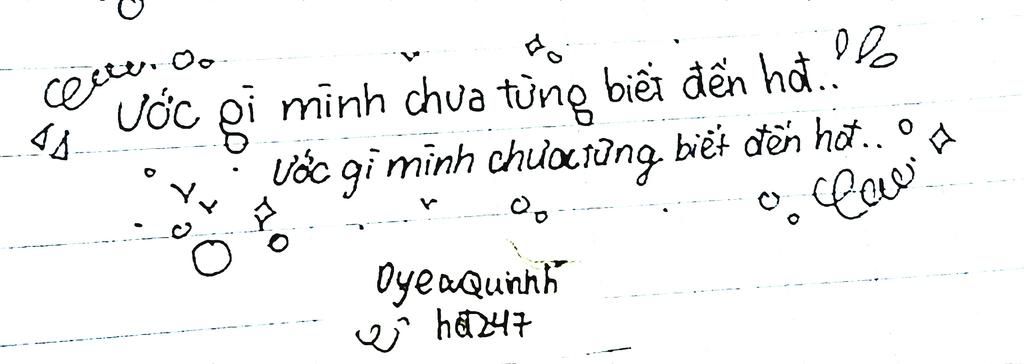 Ước gì mình chưa từng biết đến hđt..
Ước gì mình chưa từng biết đến hđt..
OyeaQuinhh
hđ247